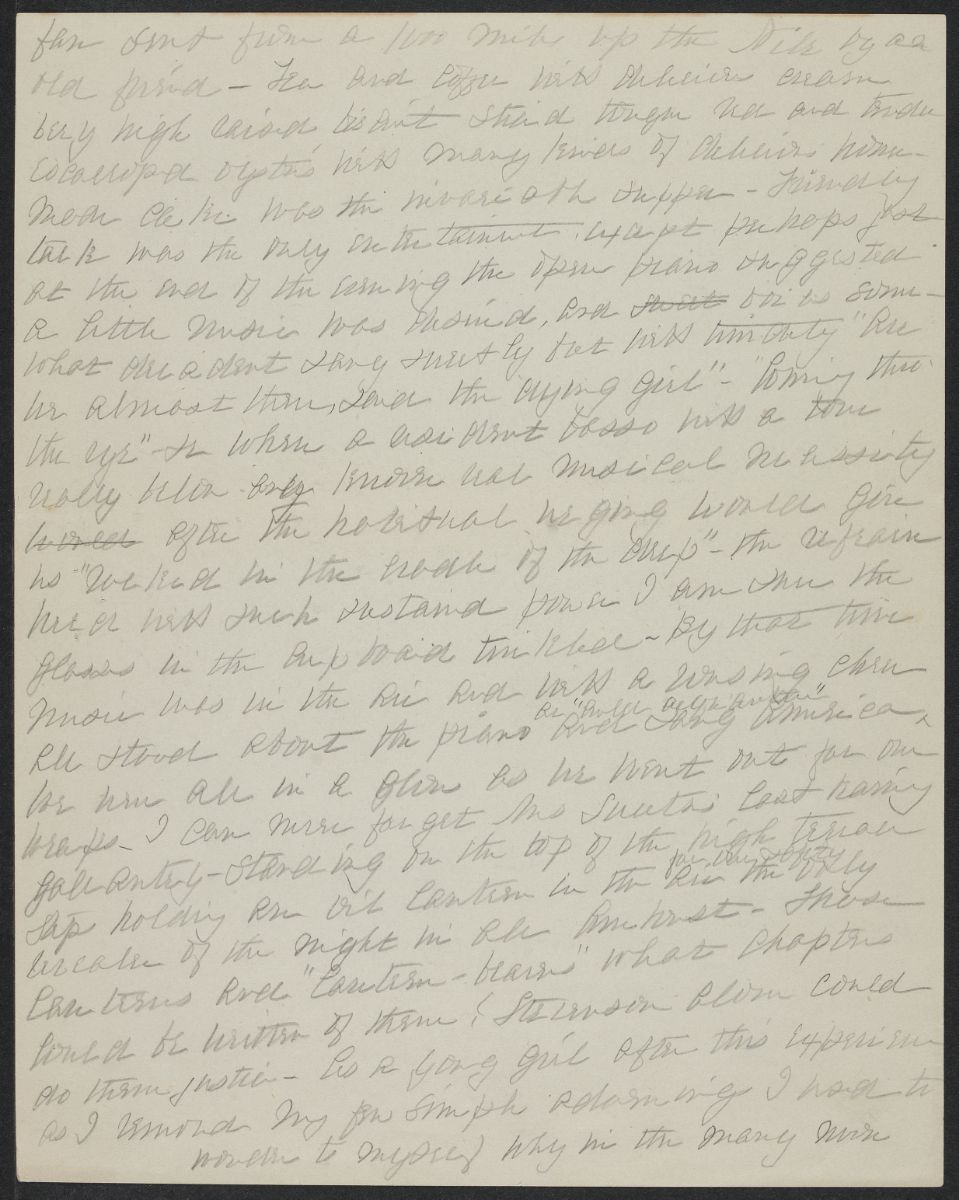 fan sent from a 1000 miles up the Nile by an
old friend – Tea and coffee with delicious cream
very high raised biscuit sliced tongue red and tender
escalloped oysters with many kinds of delicious home-
made cake was the invariable supper – Friendly
talk was the only entertainment, except perhaps just
at the end of the evening the open piano suggested
a little music was desired, and sweet voices some-
what decadent sang sweetly but with timidity "Are
we almost there, said the dying girl" – "Coming thro'
the rye" – or when a resident basso with a tone
really below any known real musical necessity
would after the habitual urging would give
us "Rocked in the cradle of the deep" – the refrain
held with such sustained power I am sure the
glasses in the cupboard tinkled – By that time
music was in the air and with a rousing cheer
all stood about the piano and sang America,
or "Auld lang syne"
we were all in a glow as we went out for our
wraps – I can never forget Mrs Sweetser's last
gallantry – Standing on the top of the high terrace
step holding an oil lantern in the air the only
for our safety
of the night in all Amherst – Those
lanterns and "lantern-bearers" what chapters
could be written of them! Stevenson alone could
do them justice – As a young girl after this experience
as I removed my few simple adornings I used to
wonder to myself why in the many more